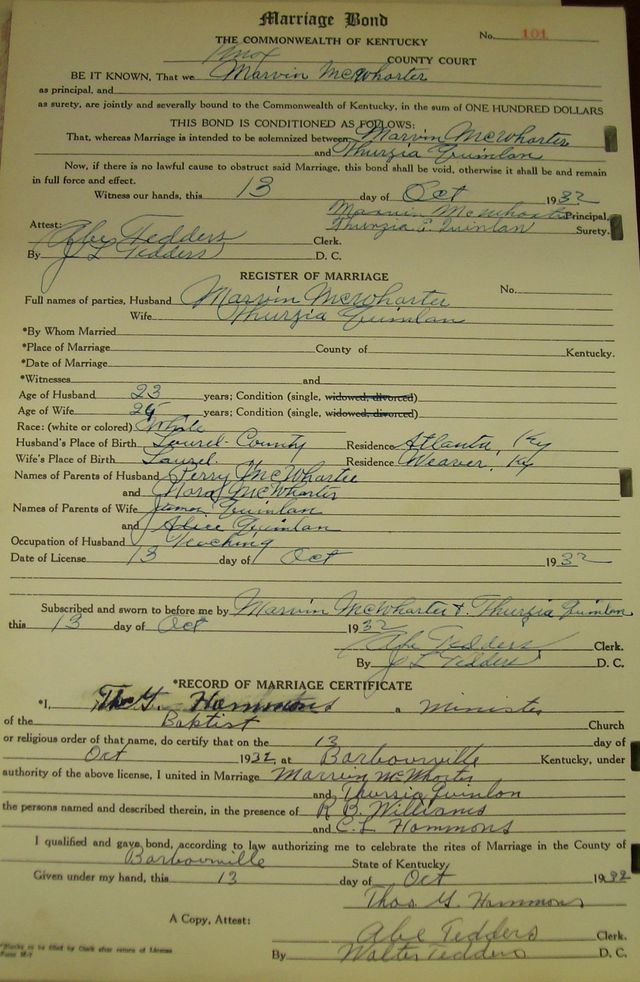 Marriage Bond
THE COMMONWEALTH OF KENTUCKY
No. 101
Knox COUNTY COURT
BE IT KNOWN, That we Marvin McWhorter
as principal, and
as surety, are jointly and severally bound to the Commonwealth of Kentucky, in the sum of ONE HUNDRED DOLLARS
THIS BOND IS CONDITIONED AS FOLLOWS:
That, whereas Marriage is intended to be solemnized between Marvin McWhorter
and Thurzia Quinlan
Now, if there is no lawful cause to obstruct said Marriage, this bond shall be void, otherwise it shall be and remain
in full force and effect.
Witness our hands, this 13 day of Oct 1932
Marvin McWhorter Principal,
Thurzia E. Quinlan Surety.
Attest:
Abe Tedders Clerk.
By J L Tedders D. C.
REGISTER OF MARRIAGE
No.
Full names of parties, Husband Marvin McWhorter
Wife Thurzia Quinlan
*By Whom Married
*Place of Marriage County of Kentucky.
*Date of Marriage
*Witnesses and
Age of Husband 23 years; Condition (single, widowed, divorced)
Age of Wife 24 years; Condition (single, widowed, divorced)
Race: (white or colored) White
Husband's Place of Birth Laurel County Residence Atlanta, Ky
Wife's Place of Birth Laurel Residence Weaver, Ky
Names of Parents of Husband Perry McWhorter
and Nora McWhorter
Names of Parents of Wife James Quinlan
and Alice Quinlan
Occupation of Husband Teaching
Date of License 13 day of Oct 1932
Subscribed and sworn to before me by Marvin McWhorter & Thurzia Quinlan
this 13 day of Oct 1932
Abe Tedders Clerk.
By J L Tedders D. C.
*RECORD OF MARRIAGE CERTIFICATE
*I, Thos G. Hammons a Minister
of the Baptist Church
or religious order of that name, do certify that on the 13 day of
Oct 1932, at Barbourville Kentucky, under
authority of the above license, I united in Marriage Marvin McWhorter
and Thurzia Quinlan
the persons named and described therein, in the presence of R B. Williams
and C. L Hammons
I qualified and gave bond, according to law authorizing me to celebrate the rites of Marriage in the County of
Barbourville State of Kentucky
Given under my hand, this 13 day of Oct 1932
Thos G. Hammons
A Copy, Attest:
Abe Tedders Clerk.
By Walter Tedders D. C.
*Blanks to be filled by Clerk after return of License
Form M-7